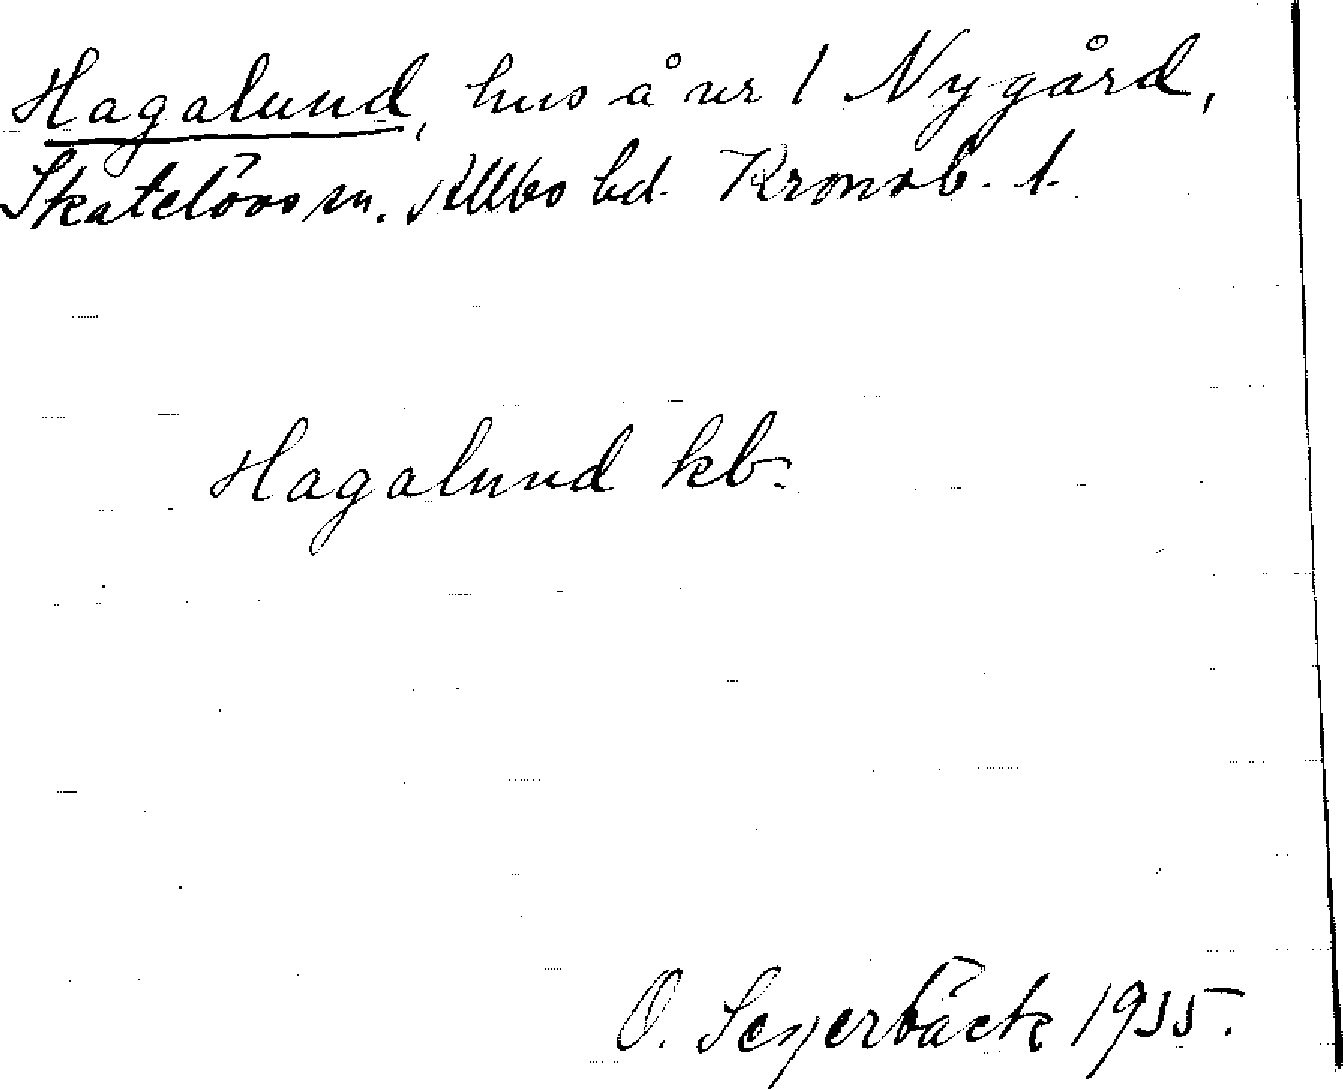 Hagalund, hus å nr 1 Nygård,
Skatelövs sn. Allbo hd. Kronob. l.
Hagalund kb.
O. Segerbäck 1955.